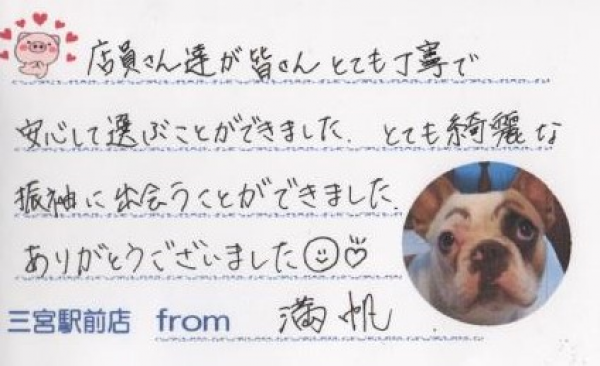 店員さん達が皆さんとても丁寧で
安心して選ぶことができました. とても綺麗な
振袖に出会うことができました.
ありがとうございました
三宮駅前店 from 満帆